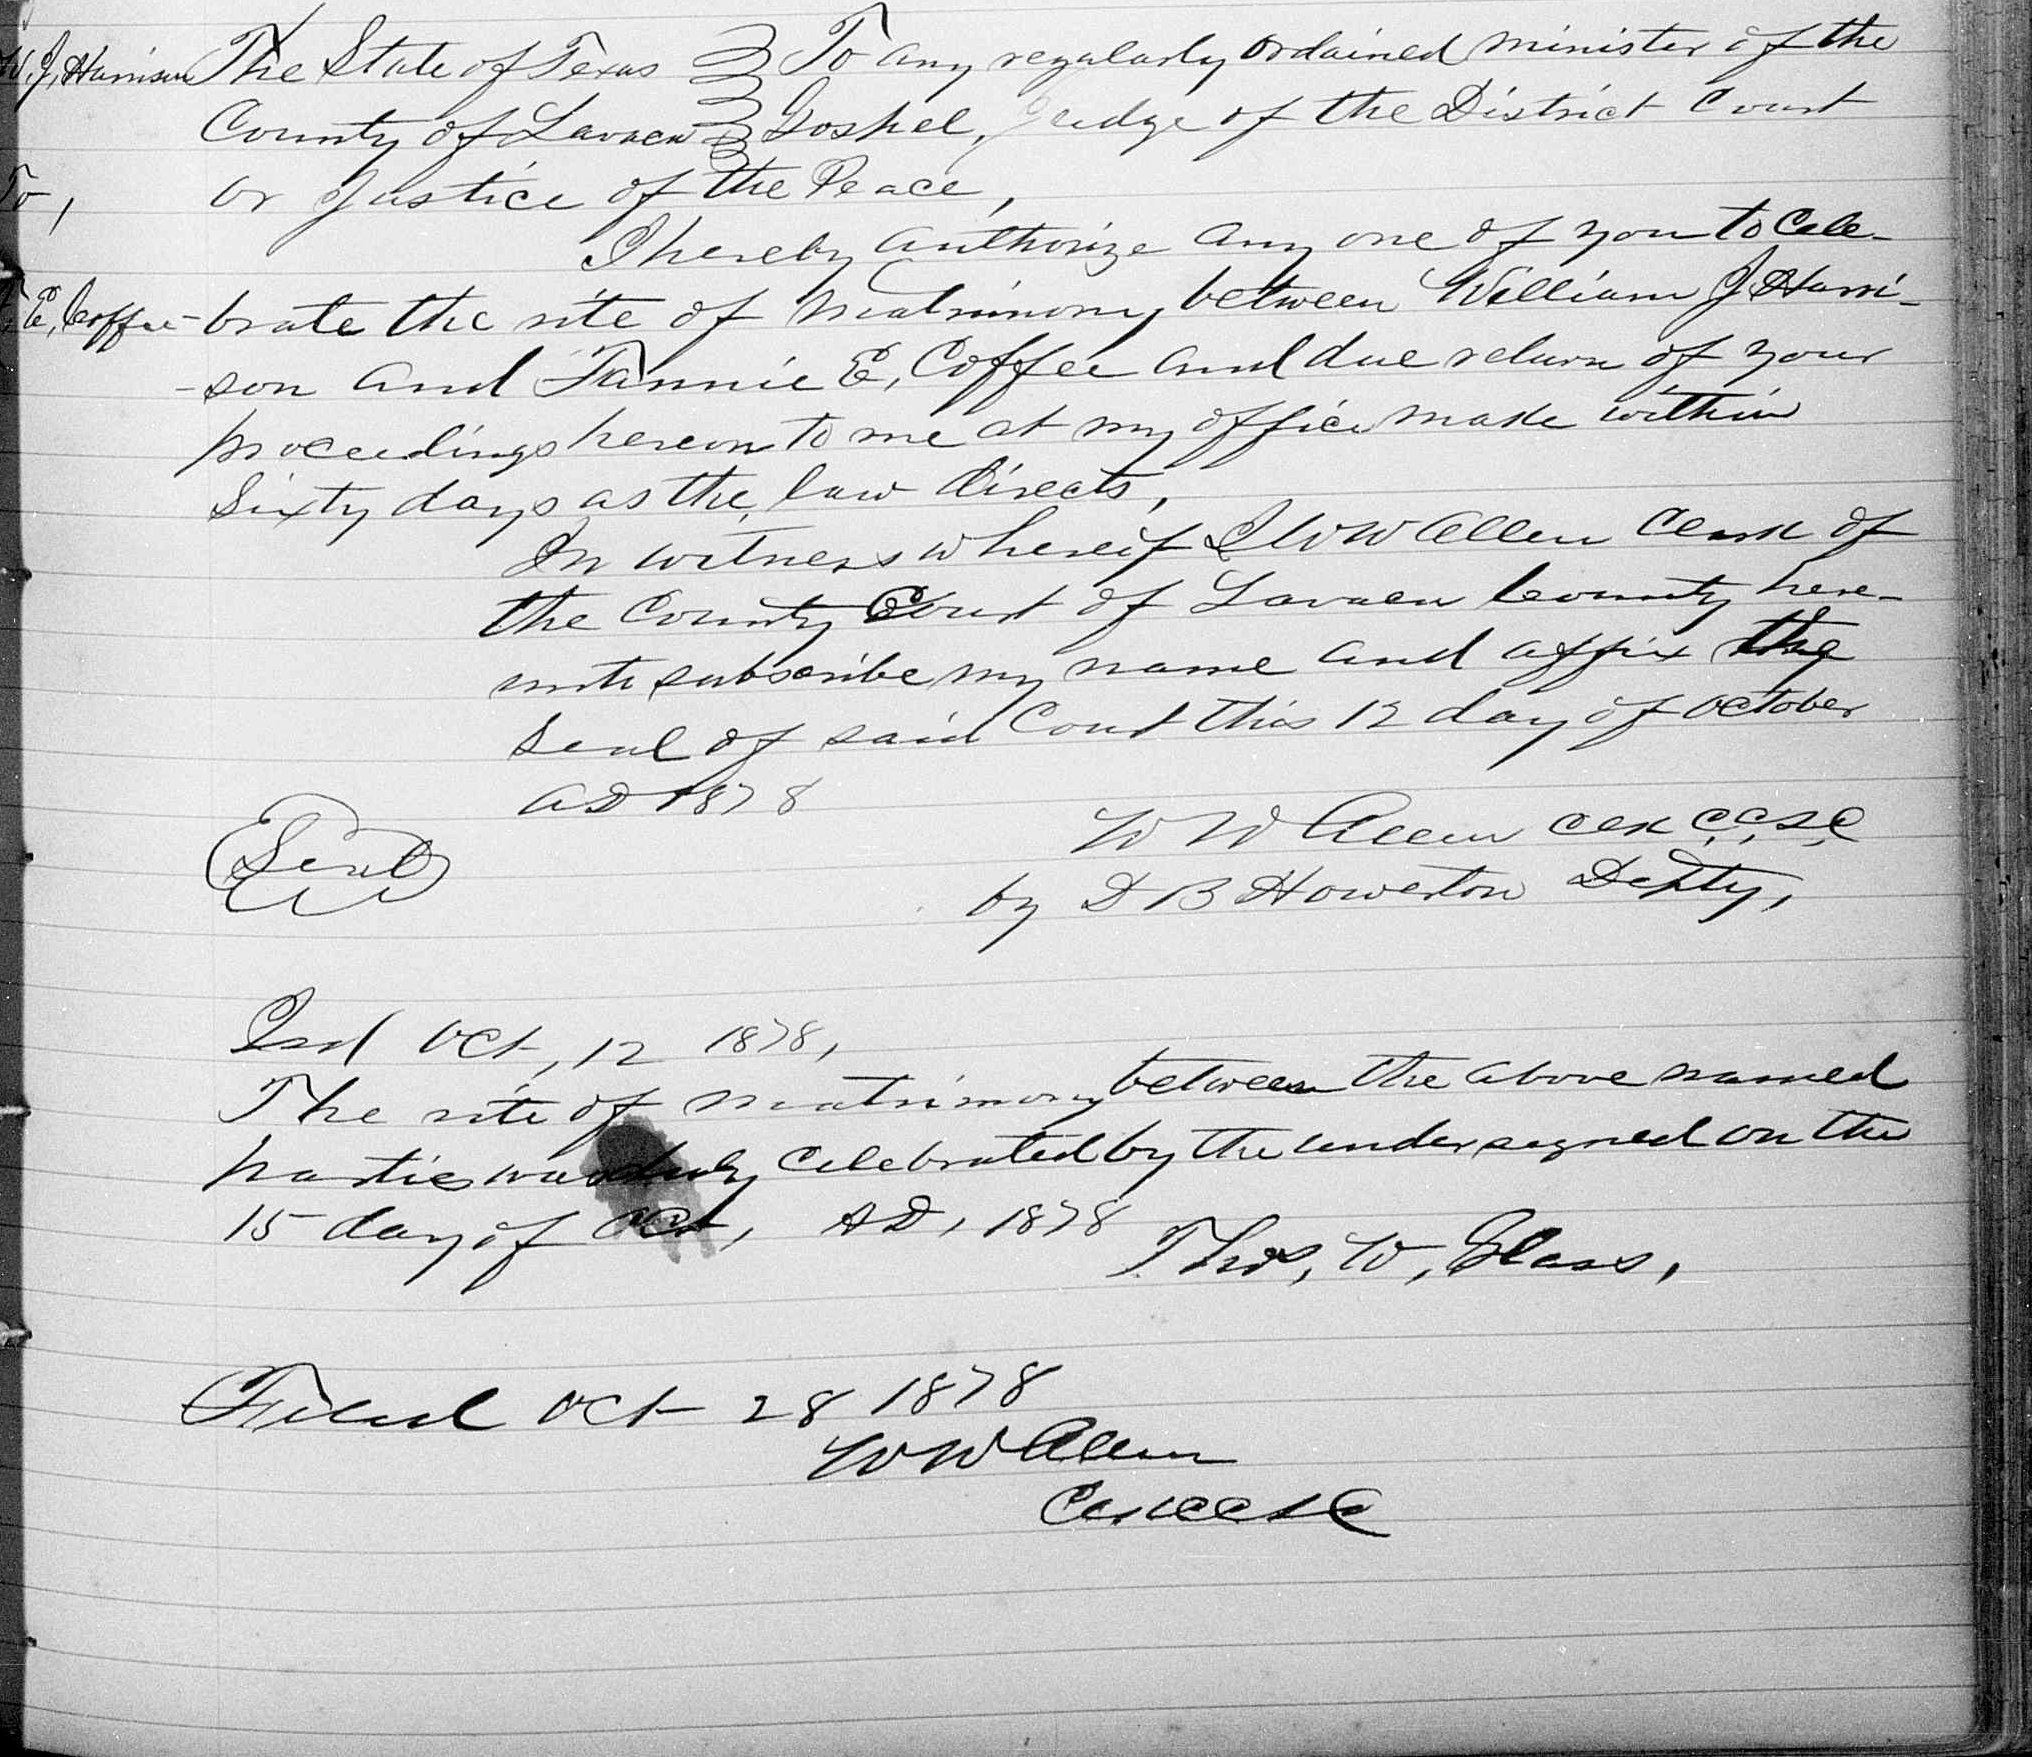 W. J. Harrison
To,
E, Coffee
The State of Texas } To any regularly ordained minister of the
County of Lavaca } Goshel, Judge of the District Court
or Justice of the Peace,
I hereby authorize any one of you to Cele-
brate the rite of matrimony between William J Harri-
-son and Fannie E, Coffee and due return of your
proceedings hereon to me at my office make within
Sixty days as the law directs,
In witness whereof I W W Allen Clerk of
the County Court of Lavaca County here-
unto subscribe my name and affix the
Seal of said Court this 12 day of October
AD 1878
W W Allen Clk C.C.L.C
Seal
by D B Howerton Depty,
Isd Oct, 12 1878,
The rite of matrimony between the above named
parties was duly Celebrated by the undersigned on the
15 day of Oct, AD, 1878
Thos, W, Glass,
Filed Oct 28 1878
W W Allen